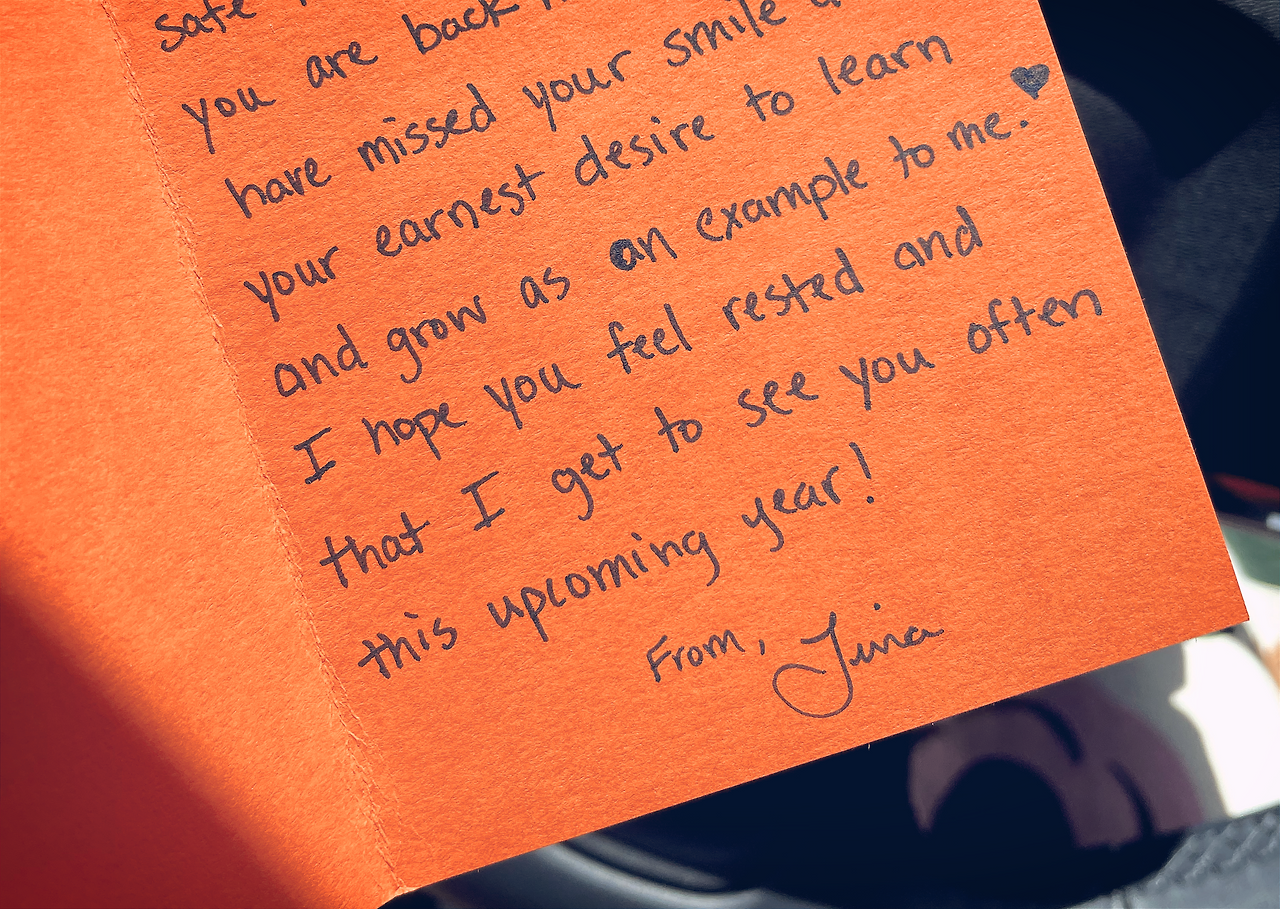 safe
you are back
have missed your smile
your earnest desire to learn
and grow as an example to me. ♥
I hope you feel rested and
that I get to see you often
this upcoming year!
From, Tina